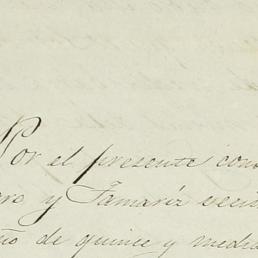 Por el presente cono
ro y Tamariz vecin
ño de quince y media